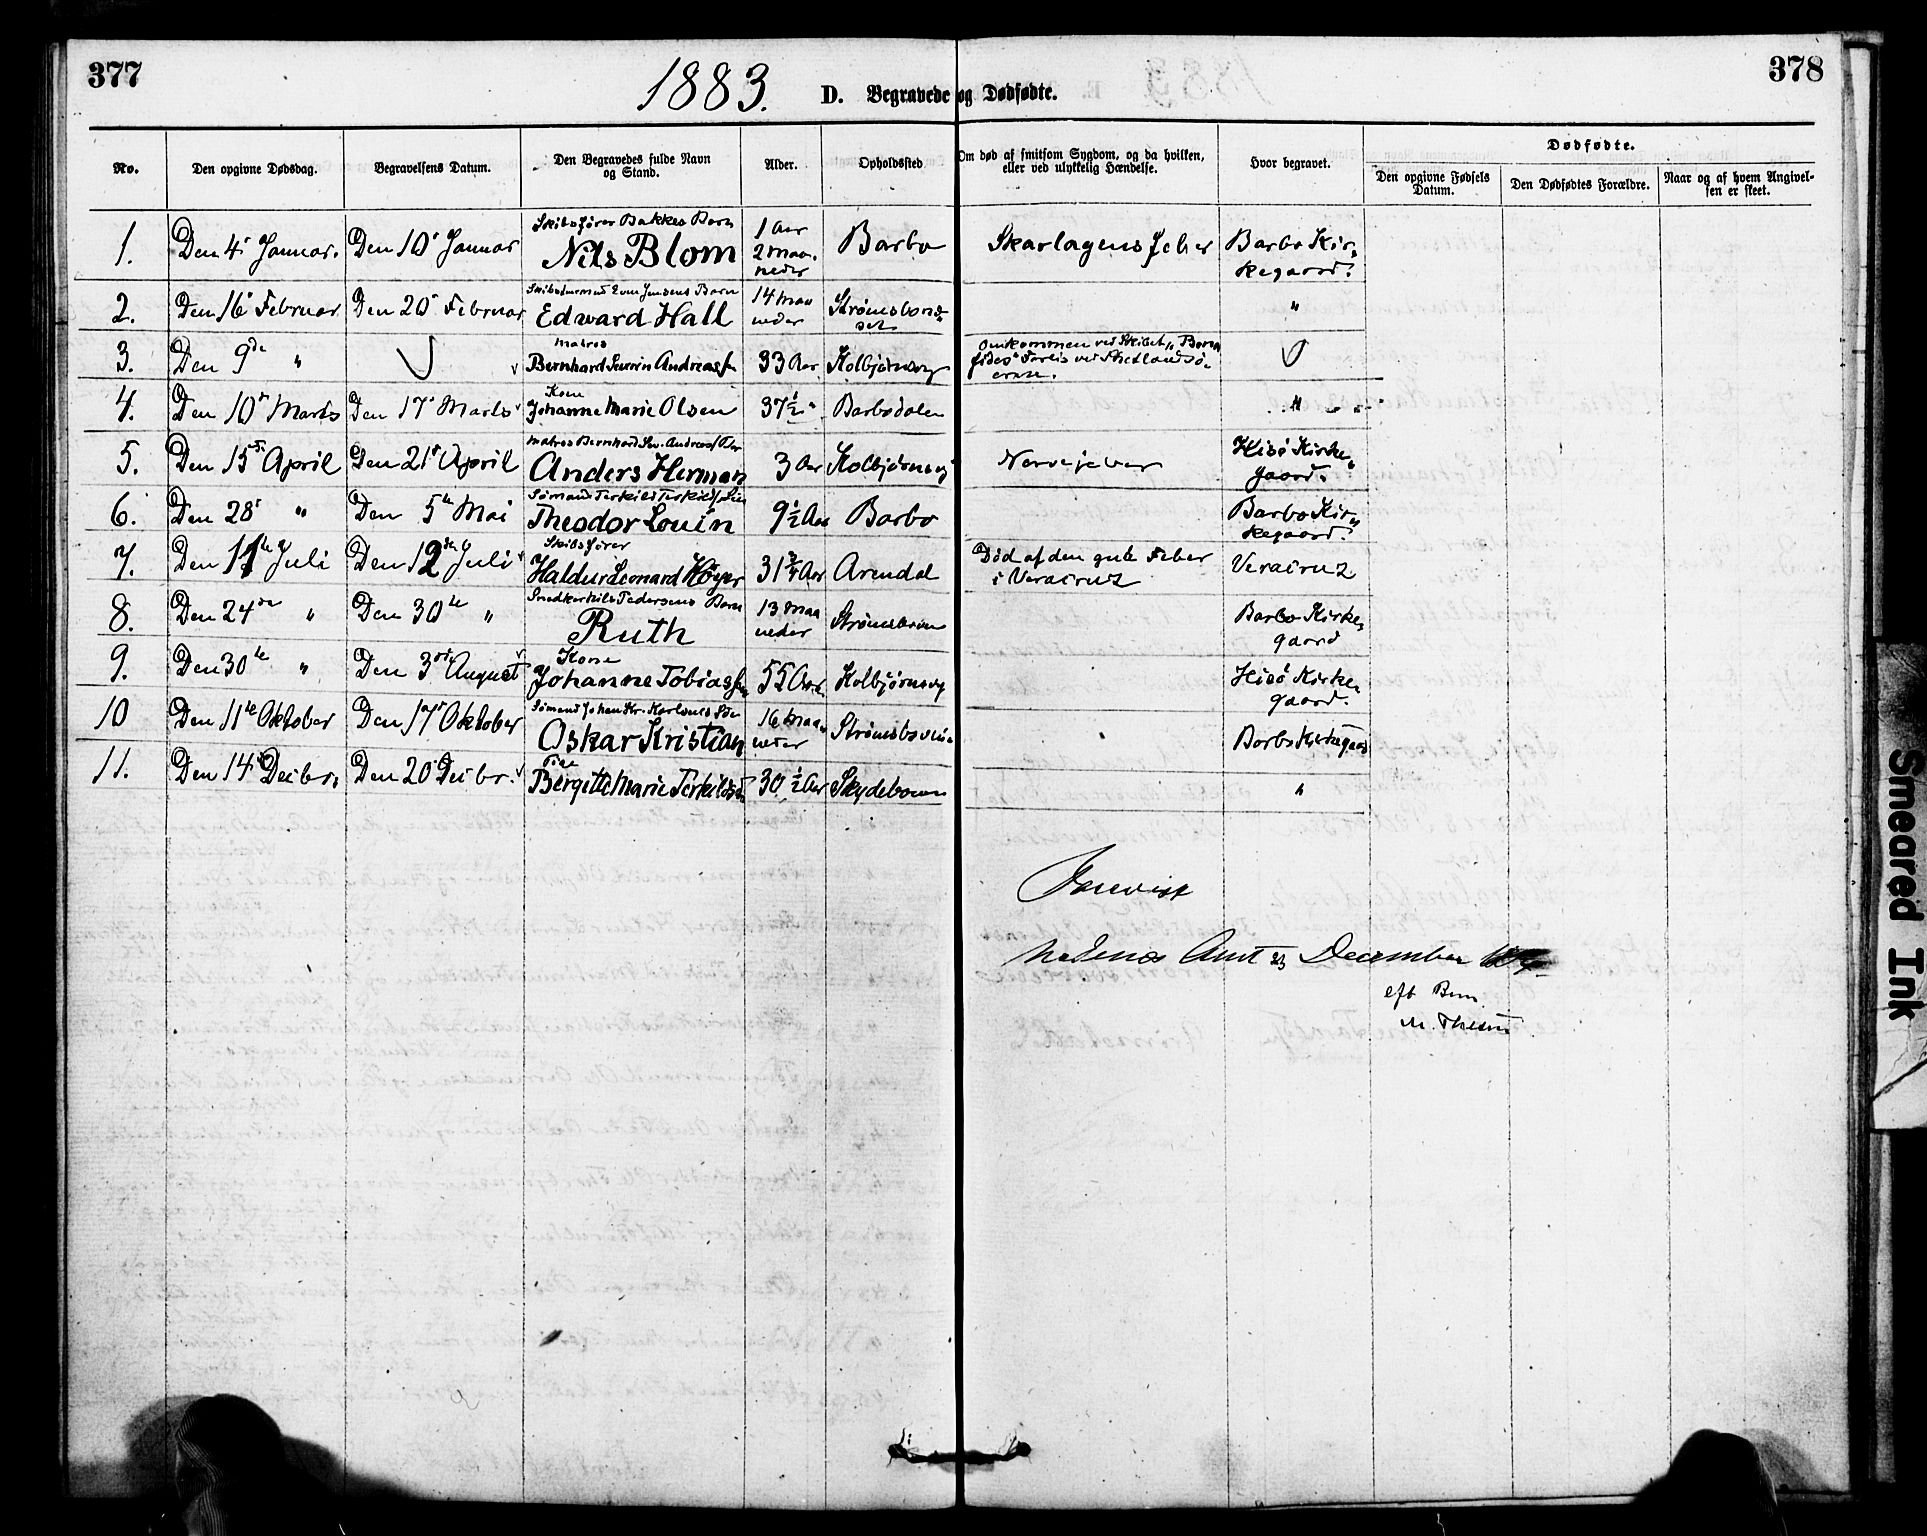 377
378
1883.
D. Begravede og Dødfødte.
No.
Den opgivne Dødsdag.
Begravelsens Datum.
Den Begravedes fulde Navn
og Stand.
Alder.
Opholdssted
Om død af smitsom Sygdom, og da hvilken,
eller ved ulykkelig Hændelse.
Hvor begravet.
Dødfødte.
Den opgivne Fødsels
Datum.
Den Dødfødtes Forældre.
Naar og af hvem Angivel-
sen er skeet.
1. Den 4 Januar. Den 10 Januar
Skibsfører Bakkes Barn
Nils Blom
1 Aar
2 Maa-
neder
Barbo
Skarlagensfeber
Barbo Kir-
kegaard.
2. Den 16 Februar Den 20 Februar
Edward Hall
14 Maa
neder
"
3. Den 9de "
Matros
Bernhard Severin Andreass
33 Aar Kolbjørnsvig
Omkommen ved Skibet "Bona
fides" Forlis ved Shetlandsø-
erne.
4. Den 10 Marts Den 17 Marts
Kone
Johanne Marie Olsen
37½ " Barbodalen
"
5. Den 15 April Den 21 April
Matros Bernhard Sev. Andreass
Anders Herman
3 Aar Kolbjørnsvig
Nervefeber
Hisø Kirke
gaard.
6. Den 28 " Den 5te Mai
Theodor Louin
9½ Aar Barbo
Barbo Kir
kegaard.
7. Den 11te Juli Den 12te Juli
Skibsfører
Haldur Leonard Høyer
31¾ Aar Arendal
Død af den gule Feber
i Veracruz
Veracruz
8. Den 24de " Den 30te "
Pedersens Barn
Ruth
13 Maa
neder
Barbo Kirke
gaard
9. Den 30te " Den 3die August
Kone
Johanne Tobias
55 Aar Kolbjørnsvig
Hisø Kirke
gaard.
10 Den 11te Oktober Den 17 Oktober
Sømand Johan Kr. Karlsens Søn
Oskar Kristian
16 Maa
neder
Barbo Kirkegaard
11. Den 14 Decbr. Den 20 Decbr.
Pige
Bergitte Marie Terkildsen
30½ Aar Skydebanen
"
Forevist
Nedenes Amt 23 December
eft Bem
M. Thesen
Smeared Ink